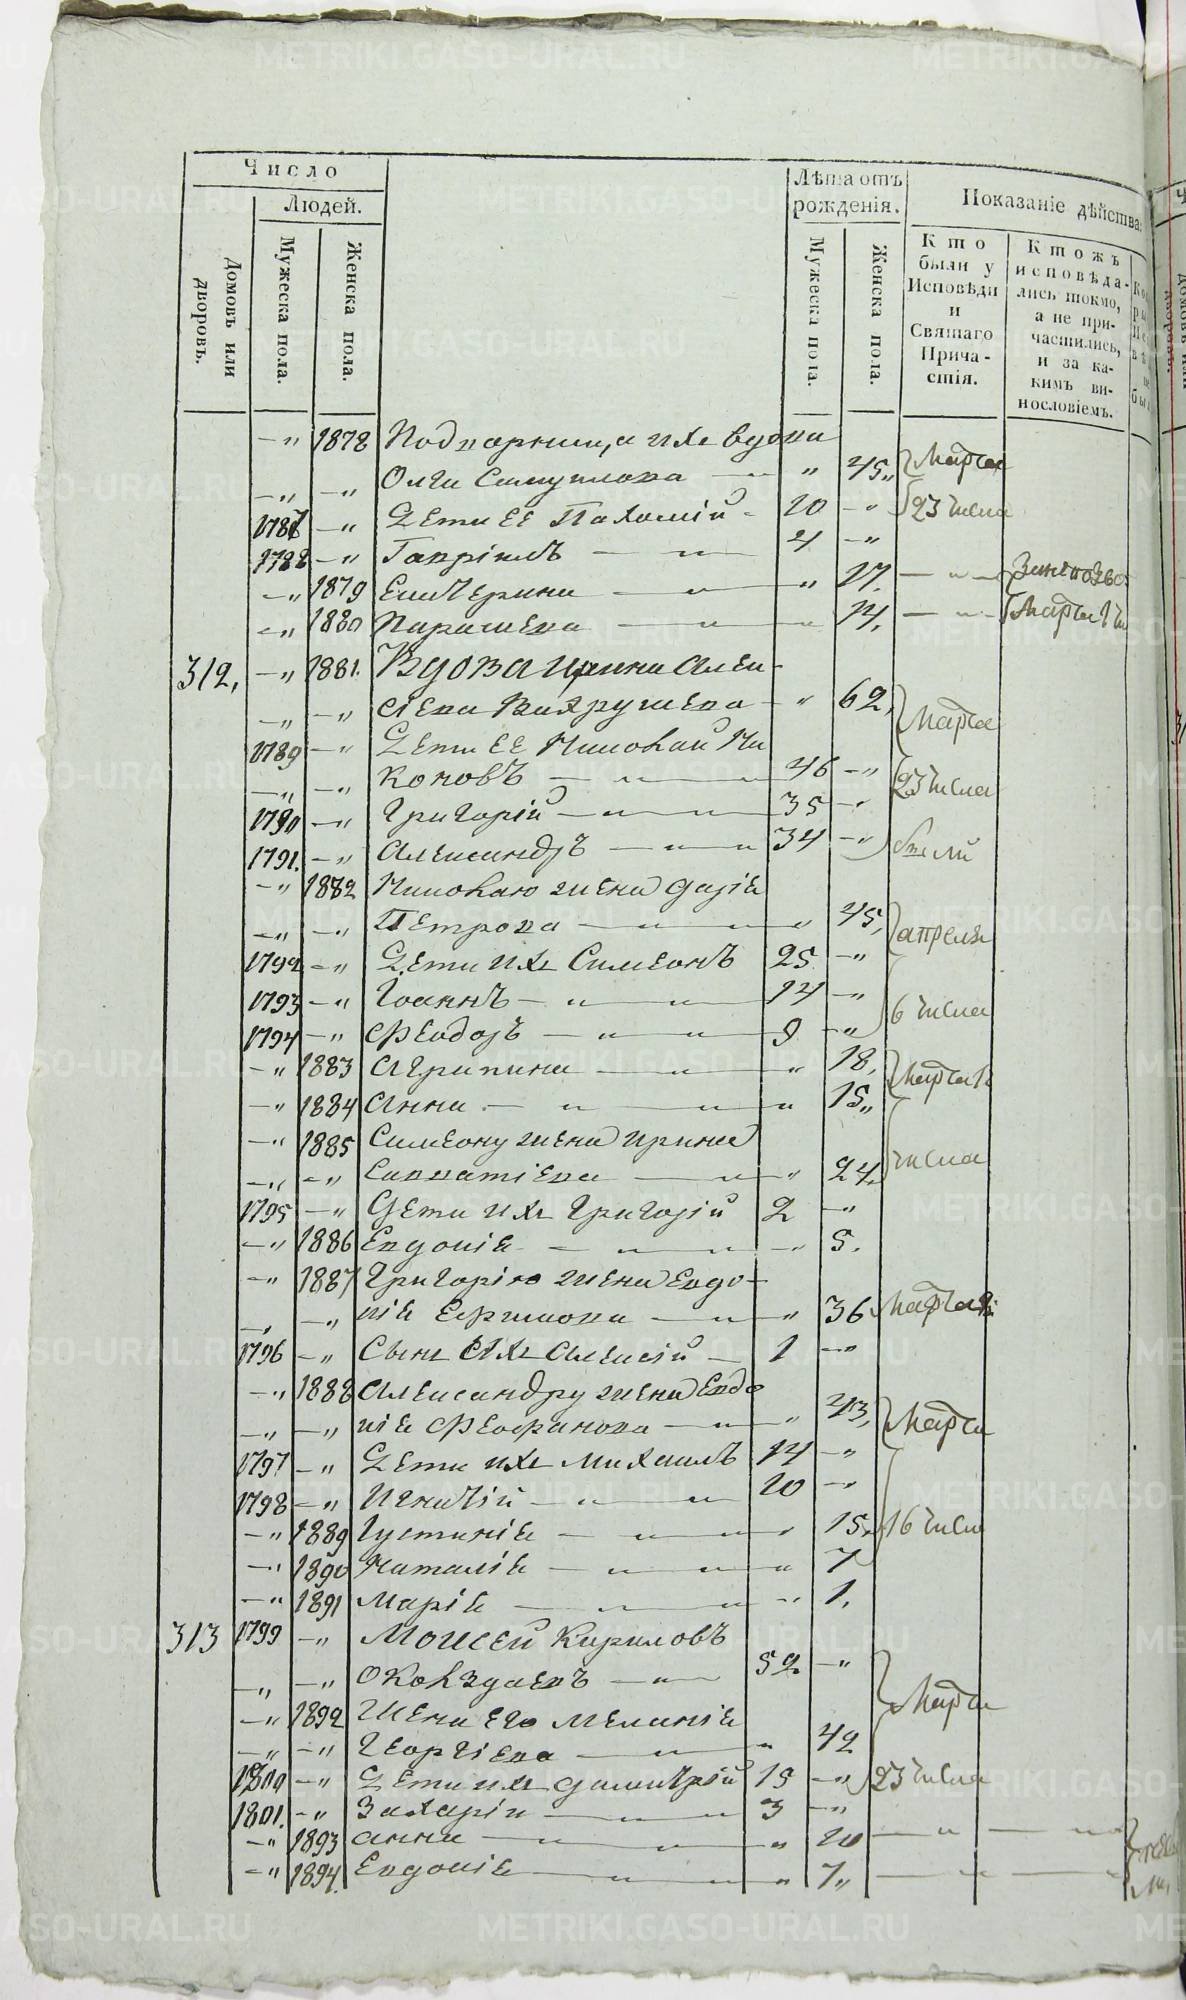 Число
Людей.
Домовъ или дворовъ.
Мужеска пола.
Женска пола.
Лѣта отъ рожденія.
Мужеска пола.
Женска пола.
Показаніе дѣйства:
Кто были у Исповѣди и Святаго Причастія.
Ктожъ исповѣдались токмо, а не причастились, и за какимъ винословіемъ.
—" 1878 вдова
Ольга — " 45,, Марта
1787 —" Дети ее Пахомій - 10 —" 23 числа
1788 —" Гавріилъ — " — 4 —"
—" 1879 Екатерина — " — " 17. — " —
—" 1880 Парасκева — " — " 14. — " — Марта
312, —" 1881. Вдова Ирина Алек-
—" —" сіева Вахрушева — " 62, Марта
1789 —" Дети ее Николай Ни
—" —" коновъ — " — " — 46 —" 23 числа
1790 —" Григорій — " — " — 35 —"
1791. —" Александръ — " — " 34 —"
—" 1882 Николаю жена Дарія
—" —" Петрова — " — " 45, апреля
1792 —" Дети ихъ Симеонъ 25 —"
1793 —" Іоаннъ — " — " 14 —" 6 числа
1794 —" Феодоръ — " — " 9 —"
—" 1883 Агрипина — " — " 18, марта
—" 1884 Анна — " — " — " 15,,
—" 1885 Симеону жена Ирина
—" —" Савватіева — " — " 24, числа
1795 —" Дети ихъ Григорій 2 —"
—" 1886 Евдокія — " — " — " 5.
—" 1887 Григорію жена Евдо-
—" —" кія Ефимова — " — " 36 Марта
1796 —" Сынъ ихъ Алексій — 1 —"
—" 1888 Александру жена Евдо
—" —" кія Феофанова — " — " 43, Марта
1797 —" Дети ихъ Михаилъ 14 —"
1798 —" Игнатій — " — " 10 —"
—" 1889 Іустинія — " — " 15, 16 числа
—" 1890 Наталія — " — " — " 7
—" 1891 Марія — " — " 1.
313 1799 —" Моисей Кириловъ
—" —" — " — 52 —"
—" 1892 Жена его Меланія Марта
—" —" Георгіева — " — " 42
1800 —" Дети ихъ Димитрій 15 —" 23 числа
1801. —" Захарій — " — 3 —"
—" 1893 Анна — " — " — " 10 — " — "
—" 1894. Евдокія — " — " — " 7,, — " —
METRIKI.GASO-URAL.RU